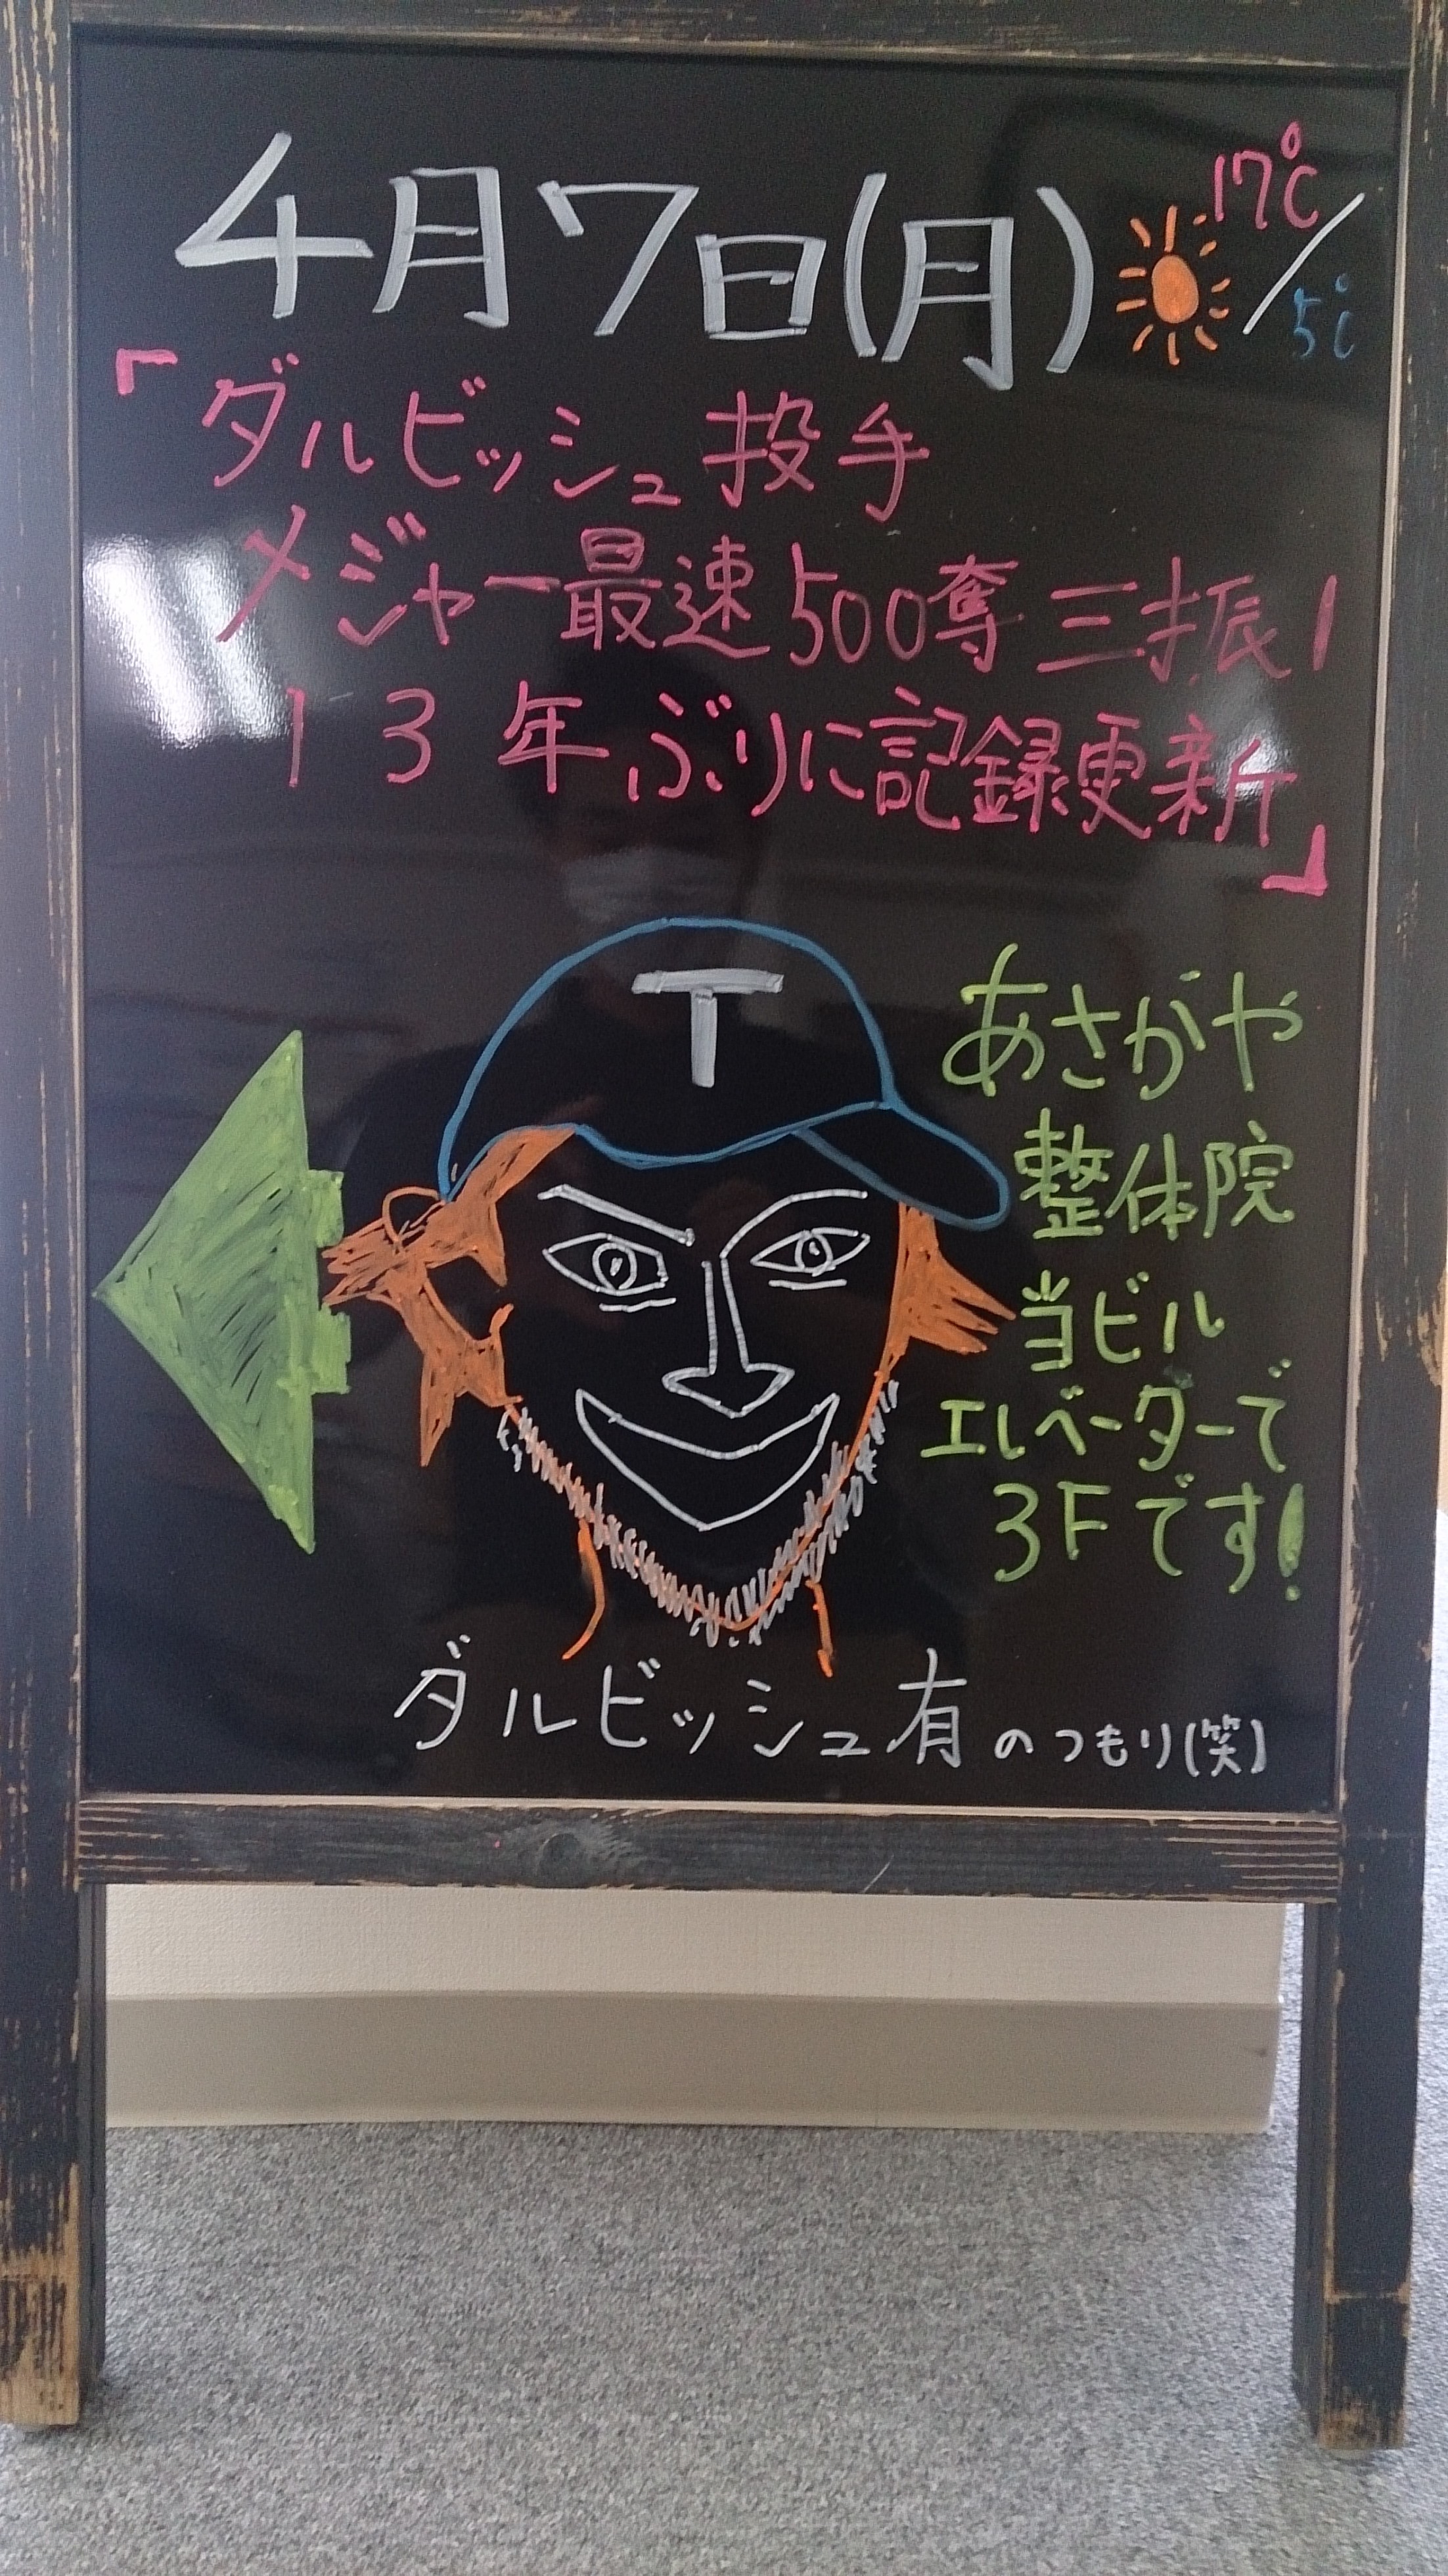 4月7日(月) 17℃/5℃
「ダルビッシュ投手
メジャー最速500奪三振！
13年ぶりに記録更新」
T
あさがや
整体院
当ビル
エレベーターで
3Fです!
ダルビッシュ有のつもり(笑)